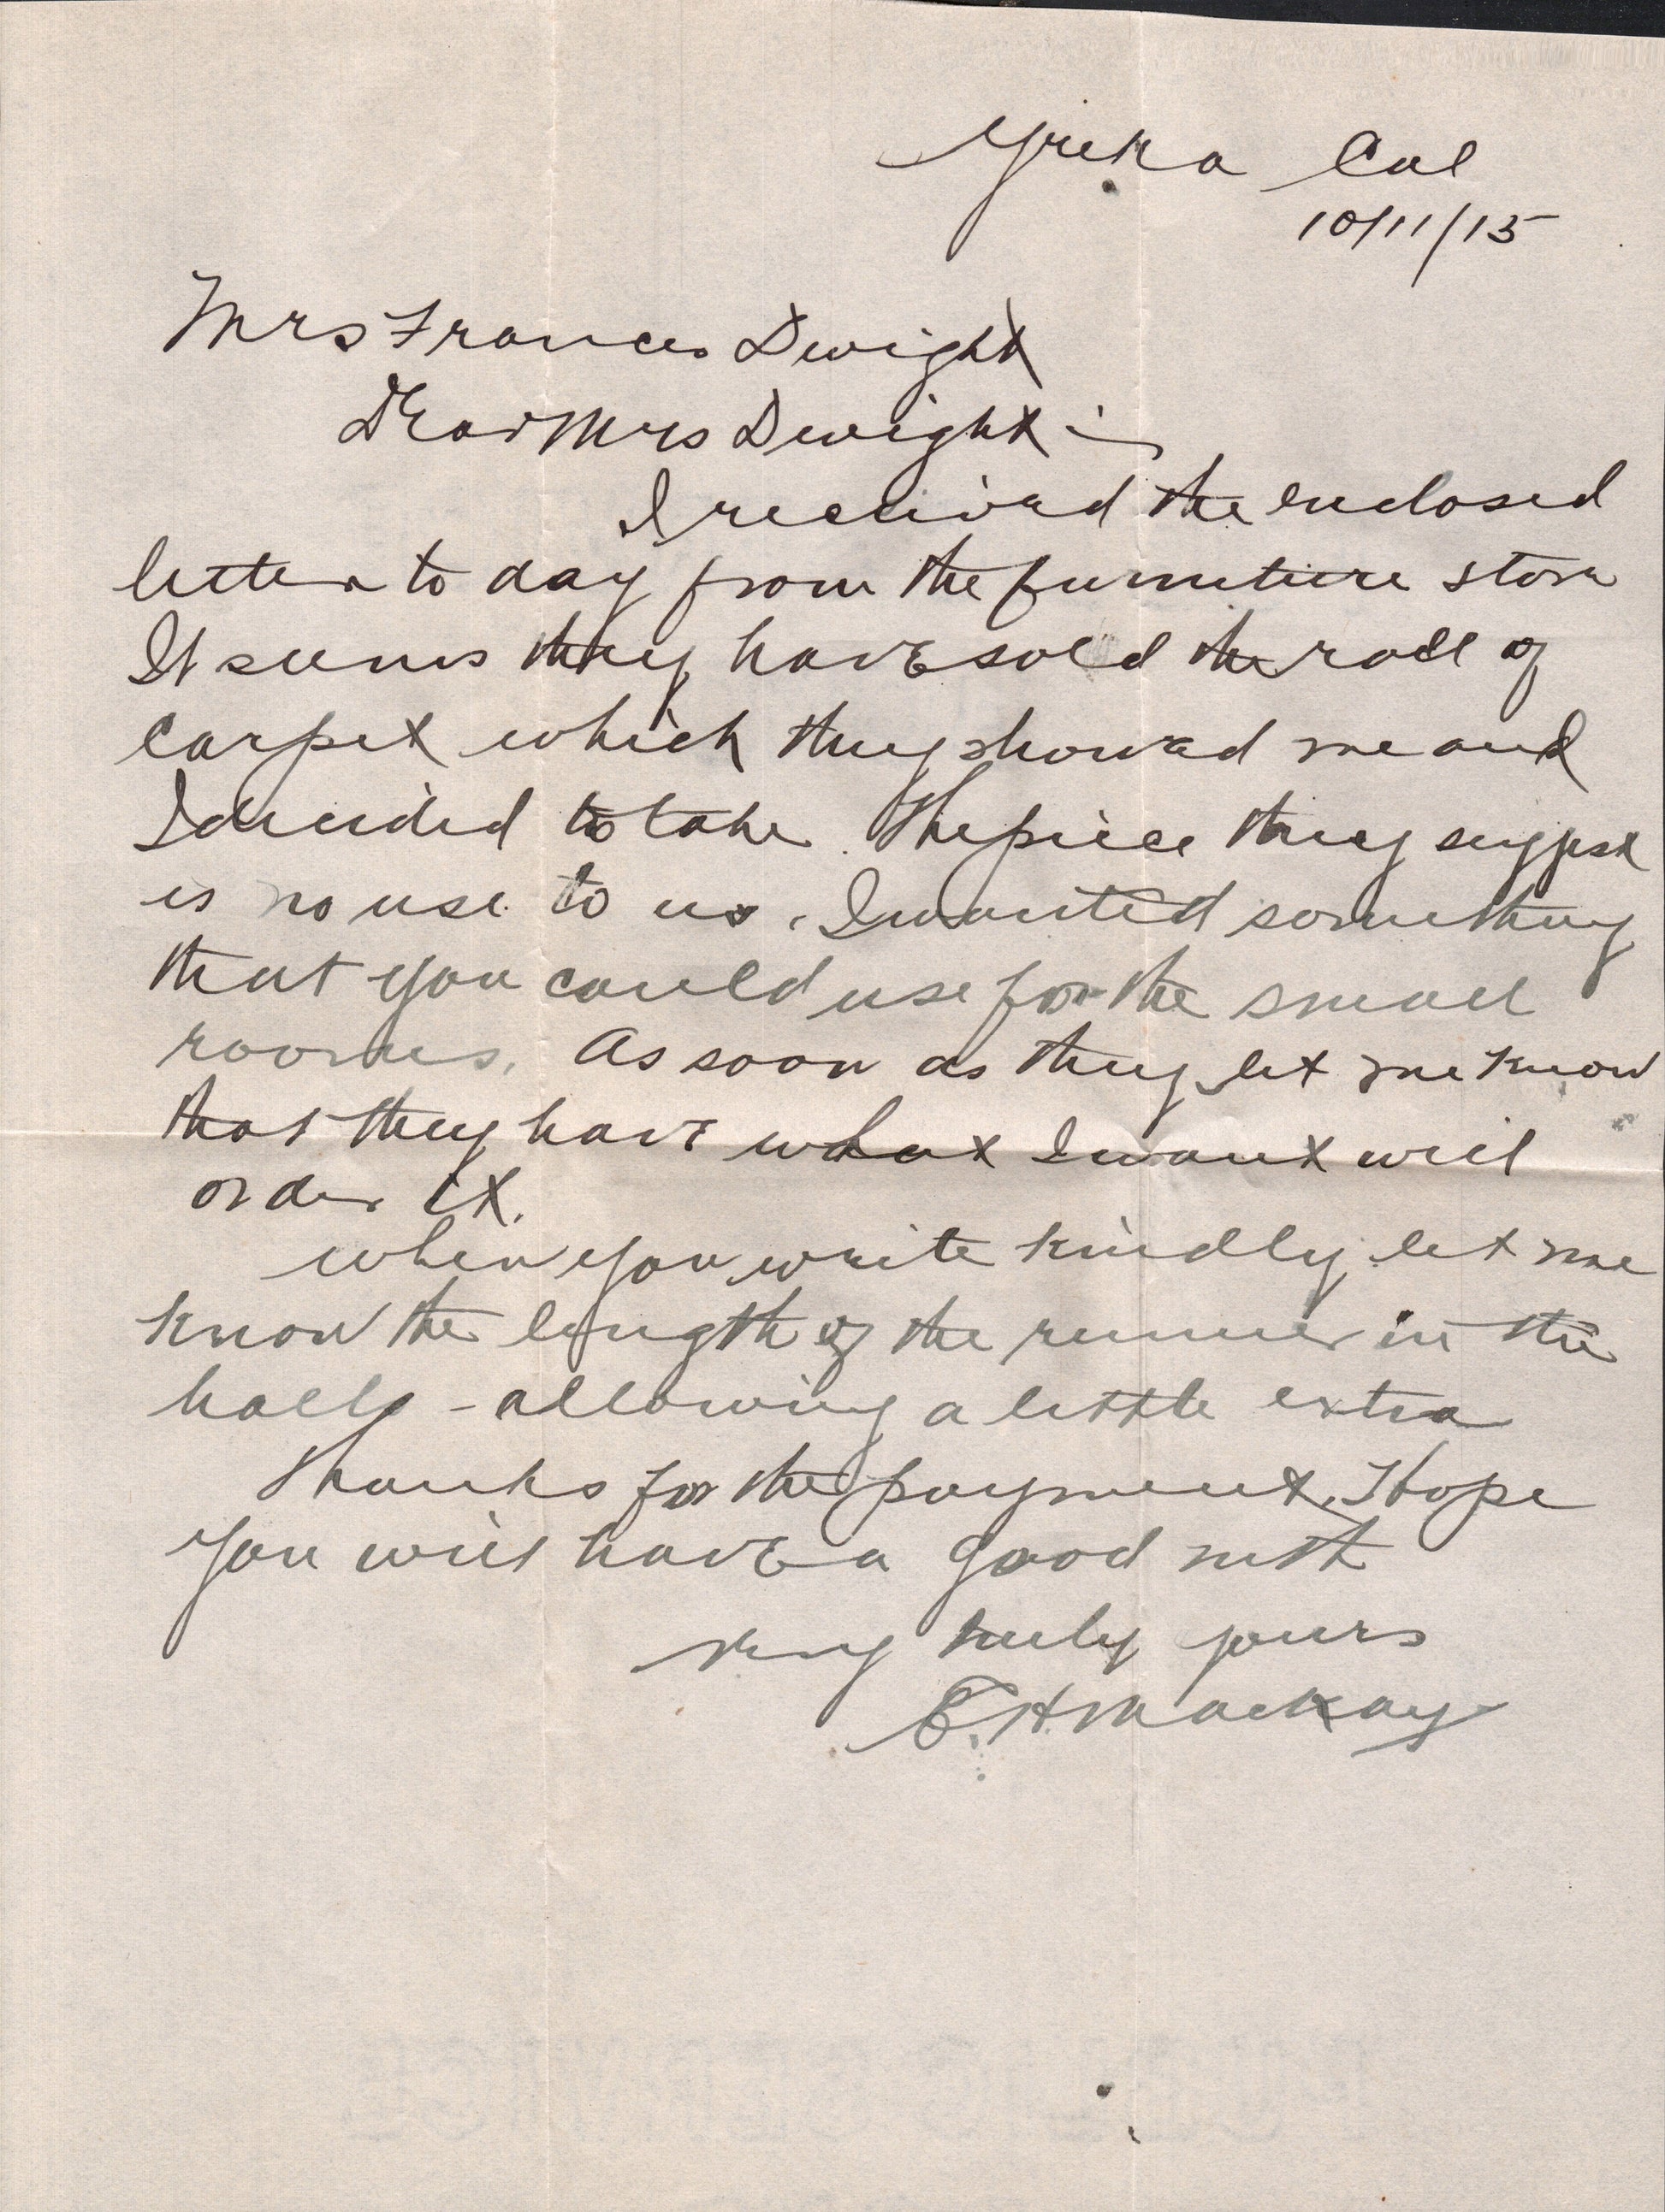 Yreka Cal
10/11/15
Mrs Frances Dwight
Dear Mrs Dwight :-
I received the enclosed
letter to day from the furniture store
It seems they have sold the roll of
carpet which they showed me and
I decided to take. The piece they suggest
is no use to us. I wanted something
that you could use for the small
rooms. As soon as they let me know
that they have what I want will
order it.
When you write kindly let me
know the length of the runner in the
halls - allowing a little extra
Thanks for the payment. I hope
you will have a good rest
Very truly yours
E. H. Mackay